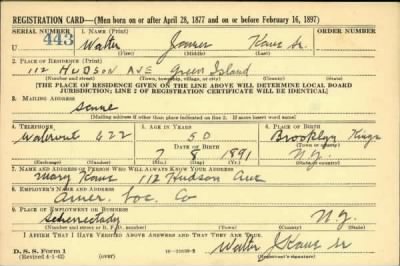 REGISTRATION CARD—(Men born on or after April 28, 1877 and on or before February 16, 1897)
SERIAL NUMBER 1. NAME (Print) ORDER NUMBER
U 443 Walter James Kane Sr.
(First) (Middle) (Last)
2. PLACE OF RESIDENCE (Print)
112 HUDSON AVE Green Island
(Number and street) (Town, township, village, or city) (County) (State)
[THE PLACE OF RESIDENCE GIVEN ON THE LINE ABOVE WILL DETERMINE LOCAL BOARD
JURISDICTION; LINE 2 OF REGISTRATION CERTIFICATE WILL BE IDENTICAL]
3. MAILING ADDRESS
Same
[Mailing address if other than place indicated on line 2. If same insert word same]
4. TELEPHONE 5. AGE IN YEARS 6. PLACE OF BIRTH
Watervliet 622 50 Brooklyn Kings
DATE OF BIRTH (Town or county)
7 8 1891 N.Y.
(Exchange) (Number) (Mo.) (Day) (Yr.) (State or country)
7. NAME AND ADDRESS OF PERSON WHO WILL ALWAYS KNOW YOUR ADDRESS
Mary Kane 112 Hudson Ave
8. EMPLOYER'S NAME AND ADDRESS
Amer. Loc. Co
9. PLACE OF EMPLOYMENT OR BUSINESS
Schenectady N.Y.
(Number and street or R. F. D. number) (Town) (County) (State)
I AFFIRM THAT I HAVE VERIFIED ABOVE ANSWERS AND THAT THEY ARE TRUE.
D. S. S. Form 1 Walter J Kane Sr
(Revised 4-1-42) (over) (Registrant's signature)